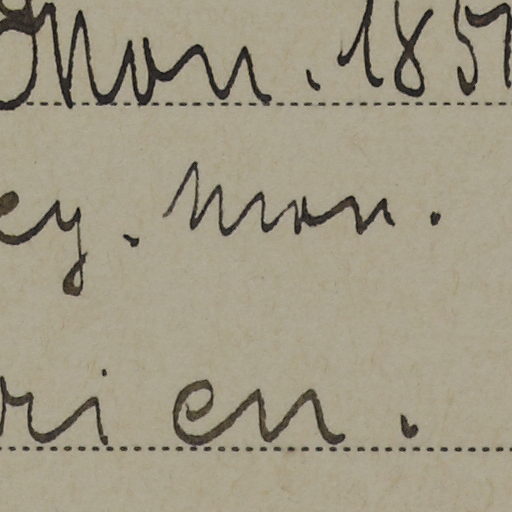 Mon. 185
ey. Mon.
rien.